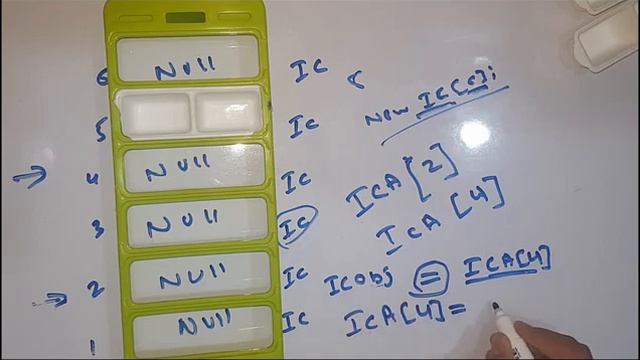 6 NUll IC
New IC[6];
5 IC
4 NUll IC
ICA[2]
3 NUll IC
ICA[4]
2 NUll IC
ICobj = ICA[4]
1 NUll IC
ICA[4]=